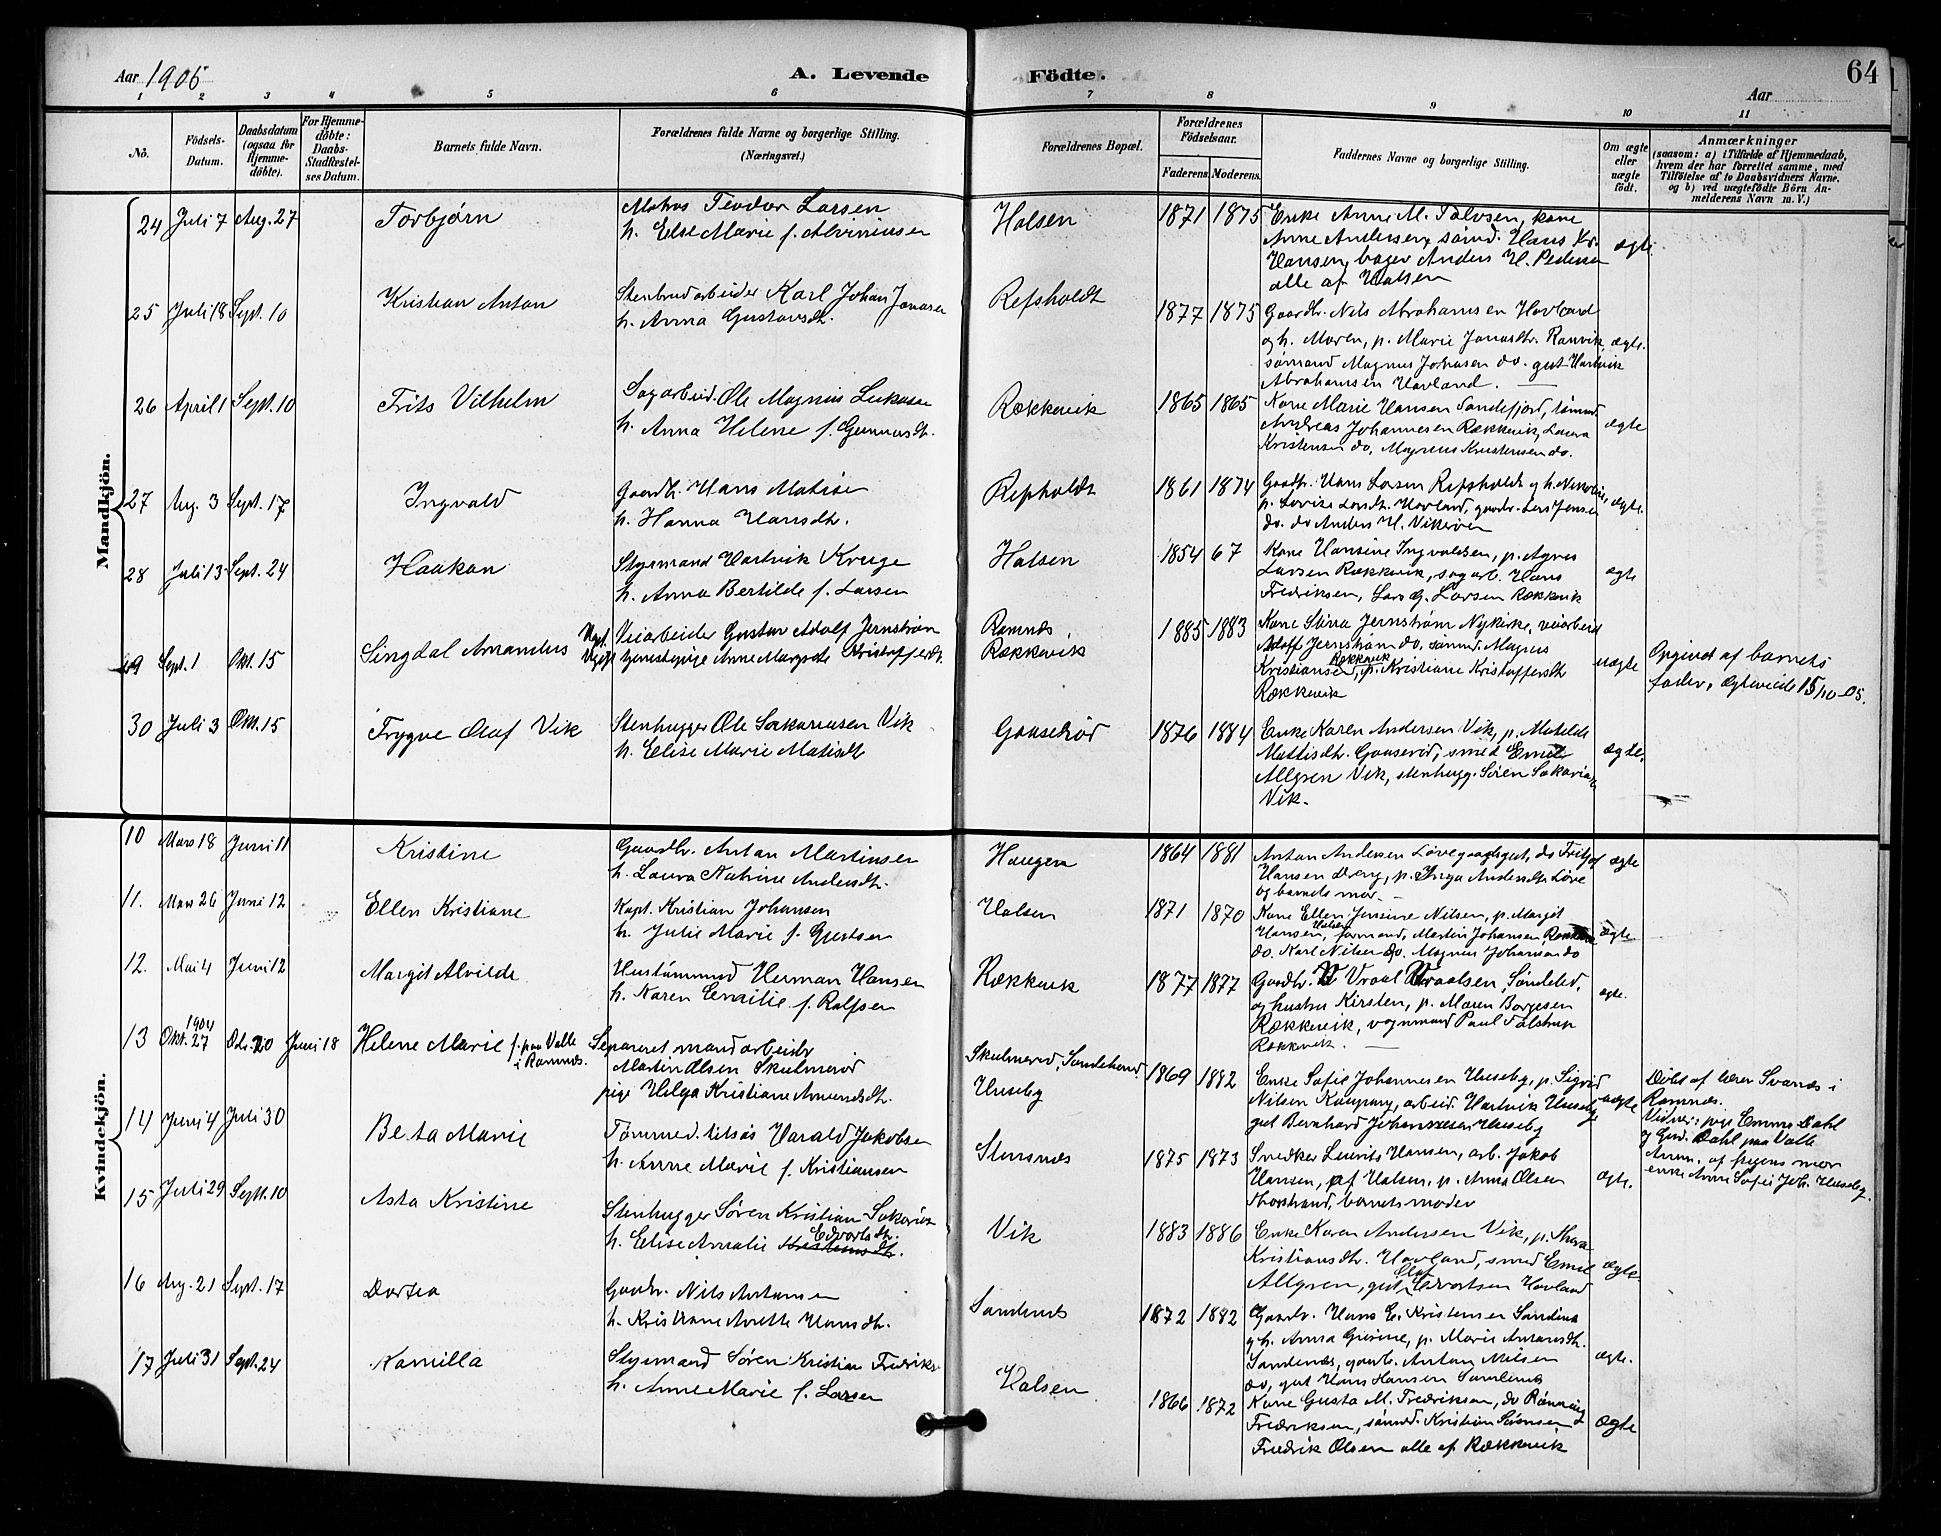 Aar 1905
A. Levende Födte.
Aar
64
1 2 3 4 5 6 7 8 9 10 11
No.
Födsels-Datum.
Daabsdatum (ogsaa for Hjemme-döbte).
For Hjemme-döbte: Daabs-Stadfæstel-ses Datum.
Barnets fulde Navn.
Forældrenes fulde Navne og borgerlige Stilling.
(Næringsvei.)
Forældrenes Bopæl.
Forældrenes Födselsaar.
Faderens. Moderens.
Faddernes Navne og borgerlige Stilling.
Om ægte eller uægte födt.
Anmærkninger
(saasom: a) i Tilfælde af Hjemmedaab, hvem der har forrettet samme, med Tilföielse af to Daabsvidners Navne. og b) ved uægtefödte Börn Anmelderens Navn m. V.)
Mandkjön.
24 Juli 7 Aug. 27 Torbjørn
Matros Teodor Larsen
h. Else Marie f.
Halsen 1871 1875
Enke Anne M. Talvsen, kone
Anne Andersen, sømd. Hans Kr.
Hansen, bager Anders H. Pedersen
alle af Halsen
ægte
25 Juli 18 Sept. 10 Kristian Anton
Stenbrudarbeider Karl Johan Jonasen
h. Anna Gustavsdtr.
Refsholdt 1877 1875
Gaardbr. Nils Abrahamsen Hovland
og h. Maren, p. Marie Jonasdtr. Ranvik,
sømand Magnus Johnsen do. gut Hartvik
Abrahamsen Hovland.
ægte.
26 April 1 Sept. 10 Frits Vilhelm
Sagarbeid. Ole Magnus
h. Anna Helene f. Gunnarsdtr.
Rækkevik 1865 1865
Kone Marie Hansen Sandefjord, sømnd
Andreas Johannesen Rækkevik, Laura
Kristensen do, Magnus Kristensen do.
ægte
27 Aug. 3 Sept. 17 Ingvald
Gaardbr. Hans Matisen
h. Hanna Hansdtr.
Refsholdt 1861 1874
Gaardbr. Hans Larsen Refsholdt og h.
p. Lovise Larsdtr. Hovland, gaardbr. Lars Jensen
do. do Anders H.
ægte.
28 Juli 13 Sept. 24 Haakon
Styrmand Hartvik Kruge
h. Anna Bertilde f. Larsen
Halsen 1854 67
Kone Hansine Ingvaldsen, p. Agnes
Larsen Rækkevik, sagarb. Hans
Fredriksen, Lars G. Larsen Rækkevik
ægte
29 Sept. 1 Okt. 15 Singdal Amandus
Ugift Veiarbeider Gustav Adolf Jernstrøm
Ugift tjenestepige Anne Margrete Kristoffersdtr.
Ramnæs,
Rækkevik 1885 1883
Kone Stina Jernstrøm Nykirke, veiarbeid
Adolf Jernstrøm do, sømnd. Magnus
Kristiansen Rækkevik, p. Kristiane Kristoffersdtr
Rækkevik
uægte
Opgivet af barnets
fader, ægteviede 15/10-05.
30 Juli 3 Okt. 15 Trygve Olaf Vik
Stenhugger Ole Sakariasen Vik
h. Elise Marie Matisdtr
Gaaserød 1876 1884
Enke Karen Andersen Vik, p. Matilde
Mattisdtr. Gaaserød, smed Emil
Allgren Vik, stenhugg. Søren Sakarias.
Vik.
ægte.
Kvindekjön.
10 Mars 18 Juni 11 Kristine
Gaardbr. Anton Martinsen
h. Laura Natrine Andersdtr.
Haugen 1864 1881
Anton Andersen Løve gaardgut, do Fritjof
Hansen p. Inga Andersdtr. Løve
og barnets mor.
ægte
11. Mars 26 Juni 12 Ellen Kristiane
Kapt. Kristian Johansen
h. Julie Marie f. Gjertsen
Halsen 1871 1870
Kone Ellen Jensine Nilsen, p. Margit
Hansen, Halsen, formand, Martin Johansen,
do. Karl Nilsen do. Magnus Johansen do
ægte
12. Mai 4 Juni 12 Margit Alvilde
Hustømmend Herman Hansen
h. Karen Emilie f. Rolfsen
Rækkevik 1877 1877
Gaardbr. Vraal Vraalsen, Søndeled,
og hustru Kirsten, p. Maren Borgesen
Rækkevik, vognmand Paul Falstrup
Rækkevik.
ægte.
13 1904 Okt. 27 20 Juni 18 Helene Marie f. paa Valle i Ramnæs.
Separeret mand arbeidr
Martin Olsen Skulmerød
pige Helga Kristiane Amundsdtr.
Skulmerød, Sandeherred.
Huseby 1869 1882
Enke Sofie Johannesen Huseby, p. Sigrid
Nilsen Kaupang, arbeid. Hartvik Huseby
gut Bernhard Johannesen Huseby
uægte
Døbt af lærer Svanæs i
Ramnæs.
Vidner: pige Emma Dahl
og Gud. Dahl paa Valle
Anm. af pigens mor
enke Anne Sofie Joh. Huseby.
14 Juni 4 Juli 30 Berta Marie
Tømmerd. Harald Jakobsen
h. Anne Marie f. Kristiansen
1875 1873
Snedker Laurits Hansen, arb. Jakob
Hansen, af Halsen, p. Anna Olsen
barnets moder
ægte.
15 Juli 29 Sept. 10 Asta Kristine
Stenhugger Søren Kristian Sakarias
h. Elise Amalie Edvartsdtr.
Vik 1883 1886
Enke Karen Andersen Vik, p. Thora
Kristiansdtr. Hovland, smed Emil
Allgren, gut Olaf Edvartsen Hovland
ægte
16 Aug. 21 Sept. 17 Dortea
Gaardbr. Nils Antonsen
h. Kristiane Anette Hansdtr.
Sandnæs 1872 1882
Gaardbr. Hans E. Kristensen Sandnæs
og h. Anna Gurine, p. Marie Antonsdtr.
Sandenæs, gaardb. Anton Nilsen
do, gut Hans Hansen Sandenæs
ægte.
17 Juli 31 Sept. 24 Kamilla
Styrmand Søren Kristian Fredriks.
h. Anne Marie f. Larsen
Halsen 1866 1872
Kone Gusta M. Fredriksen, do Rønning
Fredriksen, sømnd. Kristian Sørensen &
Fredrik Olsen alle af Rækkevik
Ægte